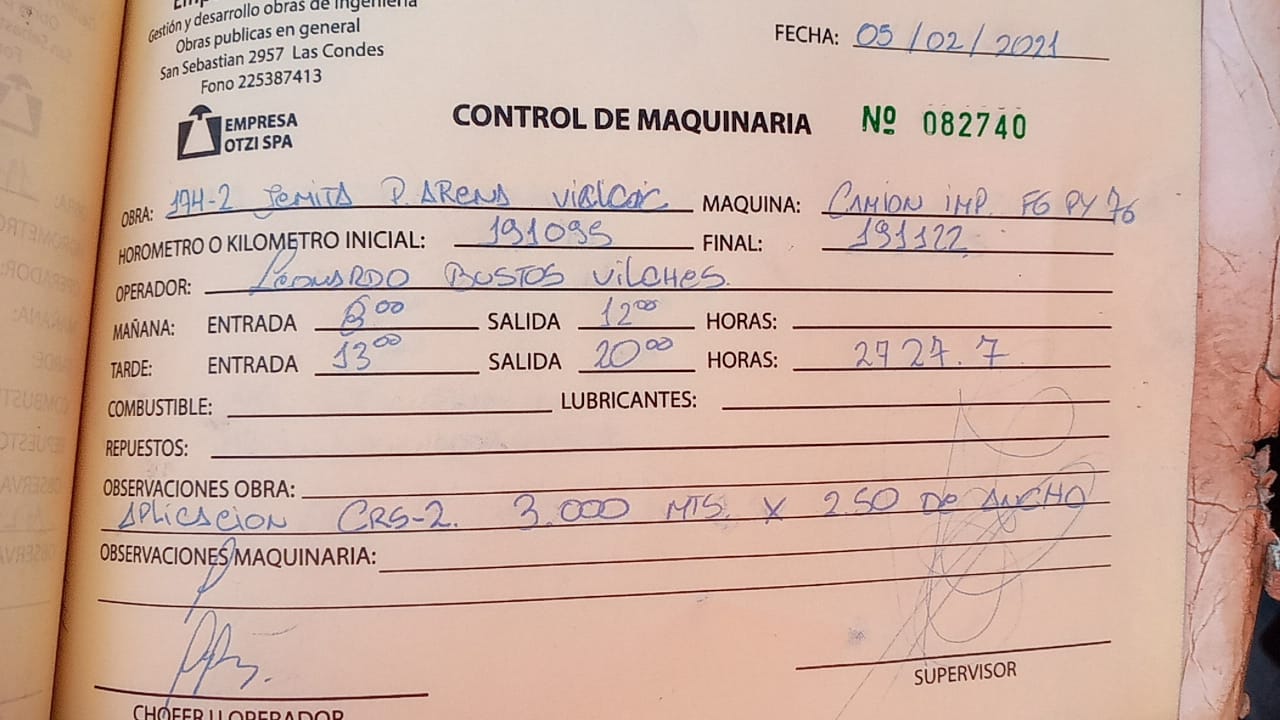 Gestión y desarrollo obras de ingeniería
Obras publicas en general
San Sebastian 2957 Las Condes
Fono 225387413
FECHA: 05/02/2021
EMPRESA
OTZI SPA
CONTROL DE MAQUINARIA Nº 082740
OBRA: 174-2 P. ARENA Vialcoic MAQUINA: CAMION IMP. FG PY 76
HOROMETRO O KILOMETRO INICIAL: 191095 FINAL: 191122
OPERADOR: LEONARDO BUSTOS VILCHES.
MAÑANA: ENTRADA 8:00 SALIDA 12:00 HORAS:
TARDE: ENTRADA 13:00 SALIDA 20:00 HORAS: 2727.7
COMBUSTIBLE: LUBRICANTES:
REPUESTOS:
OBSERVACIONES OBRA:
APLICACION CRS-2. 3.000 MTS. X 2.50 DE ANCHO
OBSERVACIONES MAQUINARIA:
SUPERVISOR
CHOFER U OPERADOR